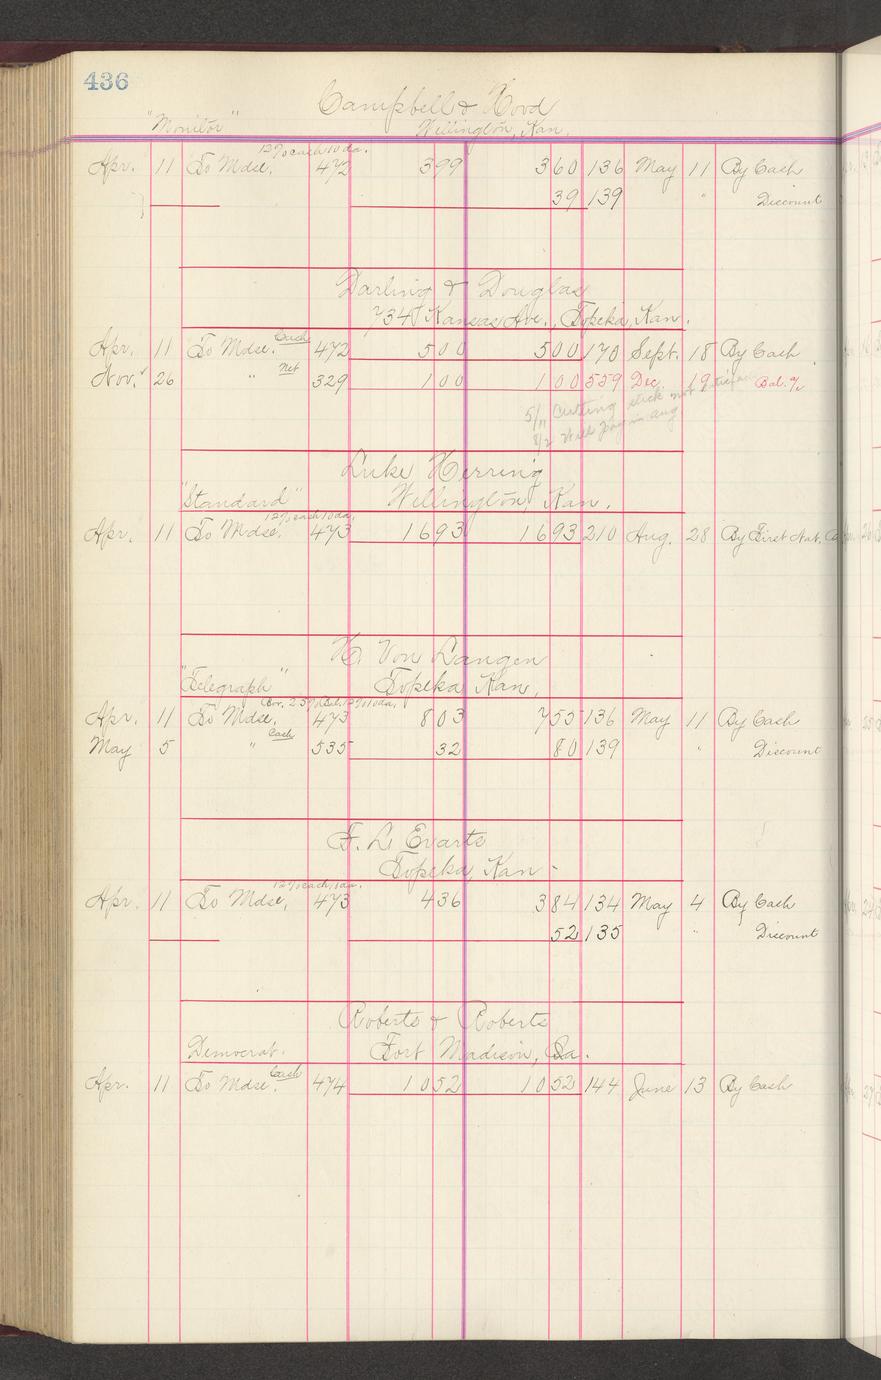 436
Campbell & Hood
"Monitor" Wellington, Kan.
12% cash 10 da.
Apr. 11 To Mdse. 472 399 360 136 May 11 By Cash
39 139 " Discount
Darling & Douglas
734 Kansas Ave., Topeka, Kan.
Apr. 11 To Mdse. Cash 472 500 500 170 Sept. 18 By Cash
Nov. 26 " Net 329 100 100 559 Dec. 19 Bal. a/c
5/11 Cutting stick not
8/2 Will pay in Aug
Luke Herring
"Standard" Wellington, Kan.
12% cash 10 da.
Apr. 11 To Mdse. 473 1693 1693 210 Aug. 28 By First Nat.
H. Von Langen
"Telegraph" Topeka, Kan.
25% Bal. 12% 10 da.
Apr. 11 To Mdse. 473 803 755 136 May 11 By Cash
May 5 " Cash 535 32 80 139 " Discount
F. L. Evarts
Topeka, Kan -
12% cash, 10 da.
Apr. 11 To Mdse. 473 436 384 134 May 4 By Cash
52 135 " Discount
Roberts & Roberts
Democrat. Fort Madison, Ia.
Apr. 11 To Mdse. Cash 474 1052 1052 144 June 13 By Cash